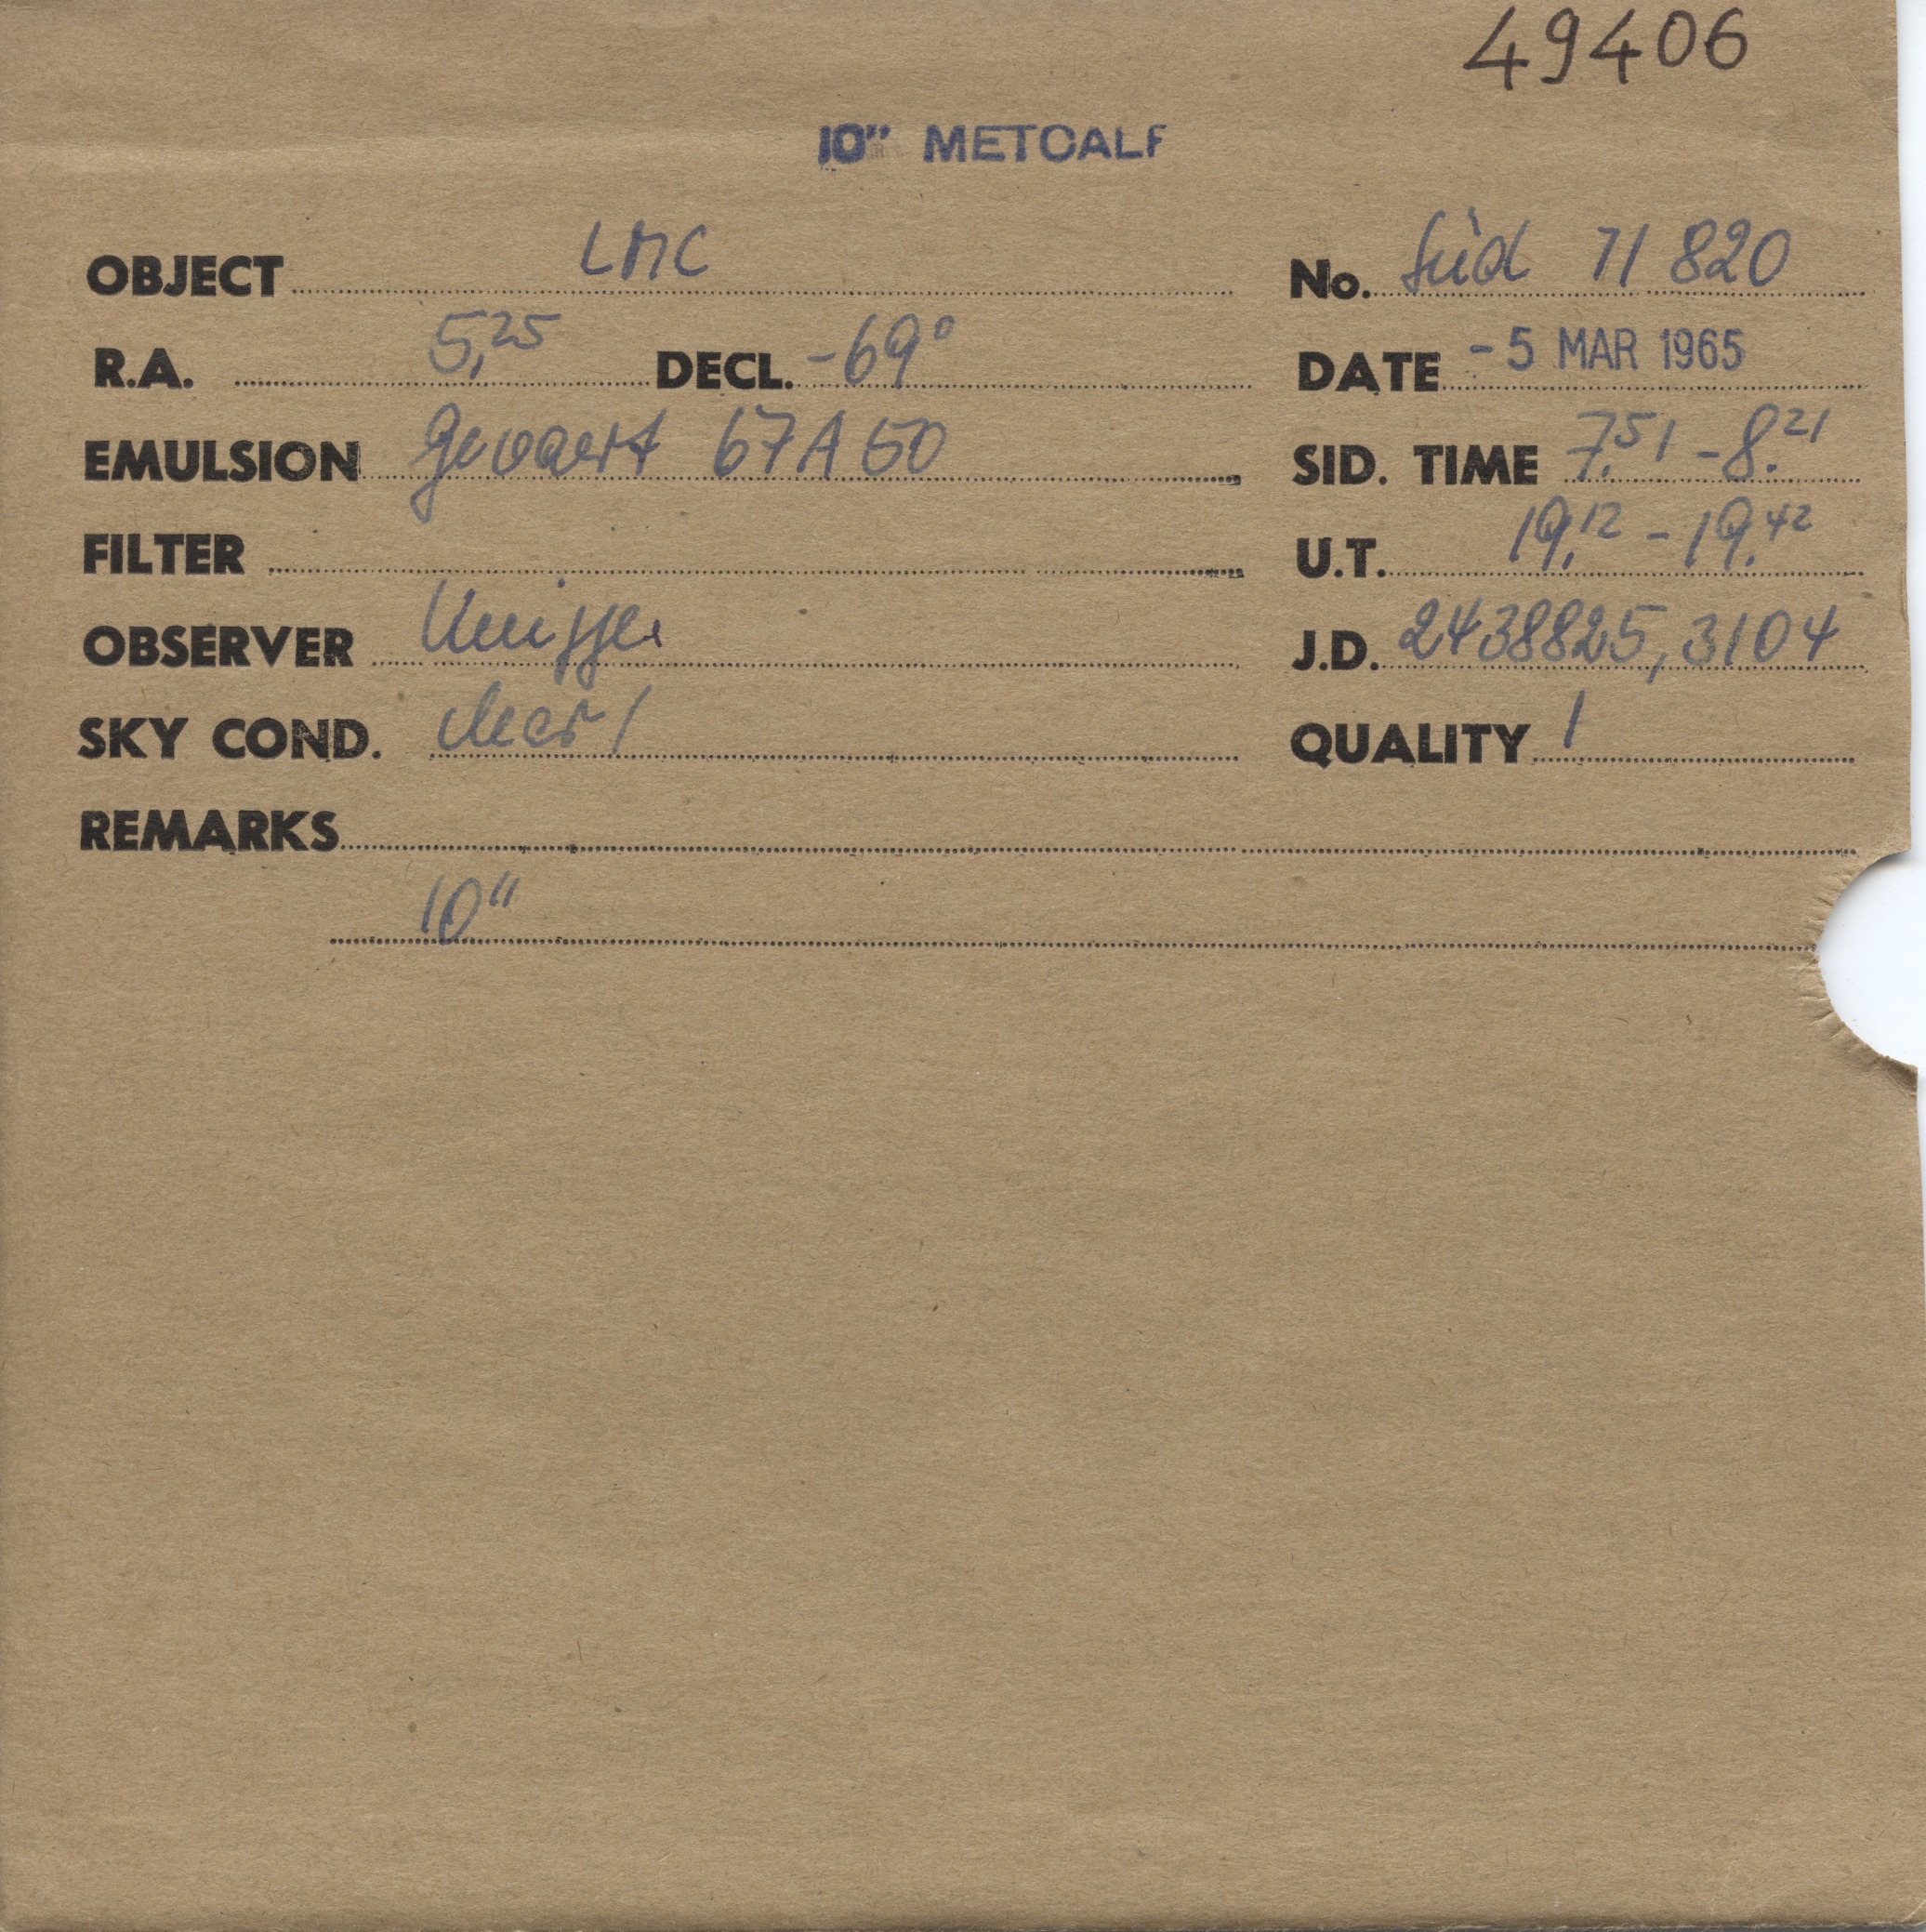 49406
10" METCALF
OBJECT LMC No. Süd 71 820
R.A. 5,25 DECL. -69° DATE - 5 MAR 1965
EMULSION Gevaert 67A50 SID. TIME 7.51 - 8.21
FILTER U.T. 19.12 - 19.42
OBSERVER J.D. 2438825,3104
SKY COND. clear 1 QUALITY 1
REMARKS
10"